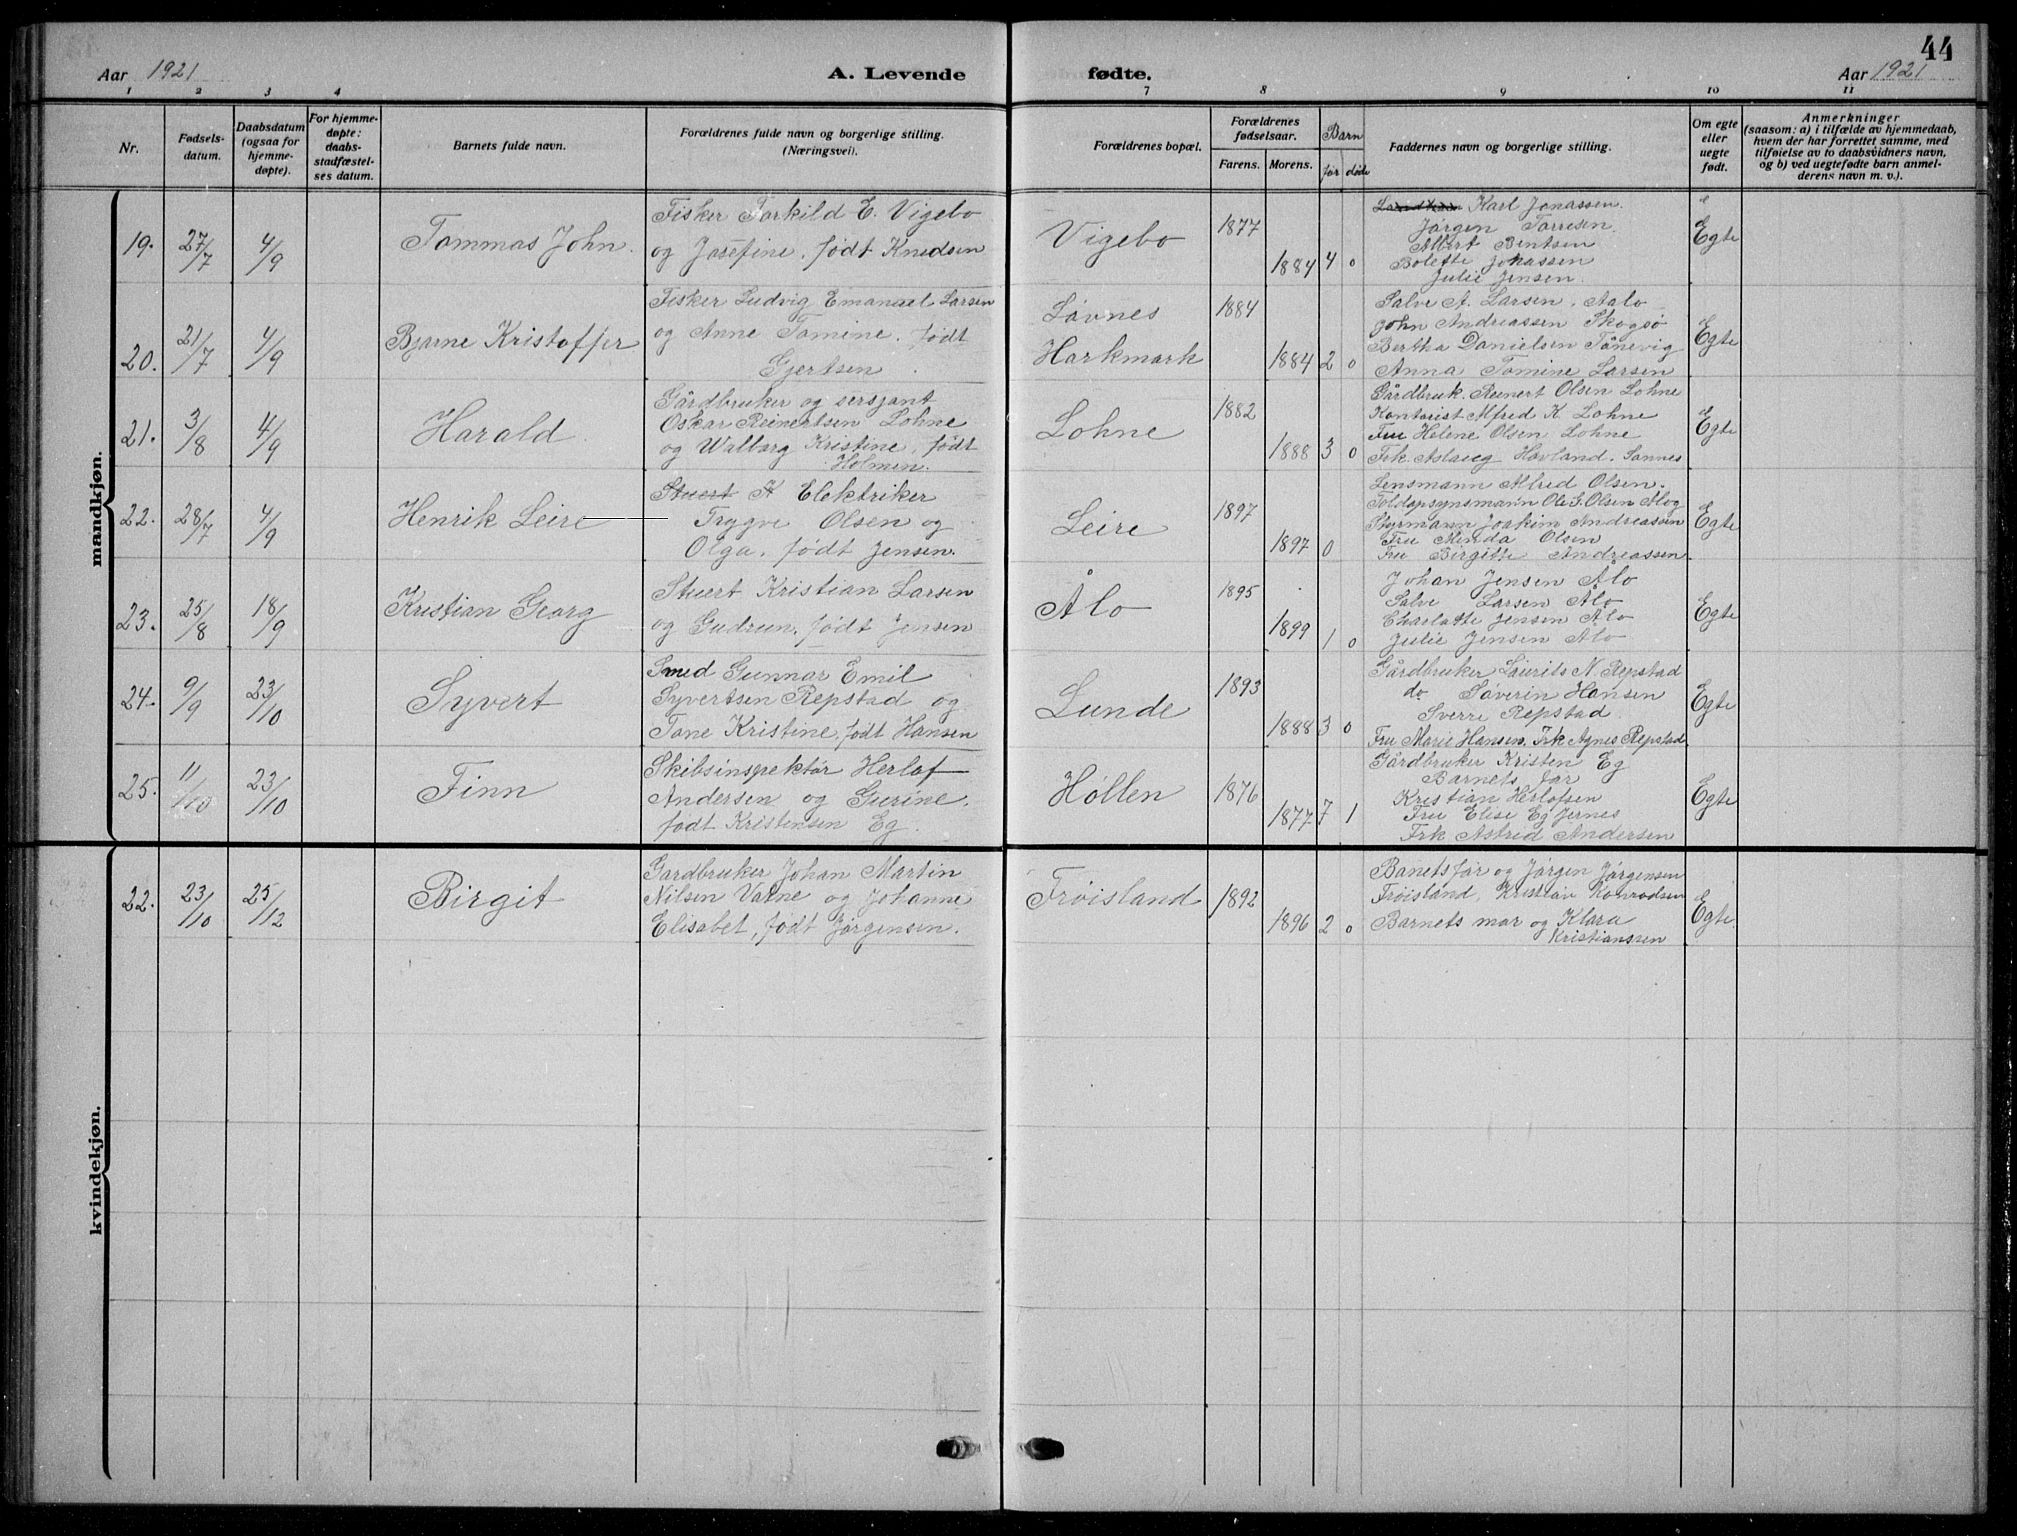 44
Aar 1921 A. Levende fødte. Aar 1921
1 2 3 4 7 8 9 10 11
Nr.
Fødsels-
datum.
Daabsdatum
(ogsaa for
hjemme-
døpte).
For hjemme-
døpte:
daabs-
stadfæstel-
ses datum.
Barnets fulde navn.
Forældrenes fulde navn og borgerlige stilling.
(Næringsvei).
Forældrenes bopæl.
Forældrenes
fødselsaar.
Farens. Morens.
Barn
før døde
Faddernes navn og borgerlige stilling.
Om egte
eller
uegte
født.
Anmerkninger
(saasom: a) i tilfælde av hjemmedaab,
hvem der har forrettet samme, med
tilføielse av to daabsvidners navn,
og b) ved uegtefødte barn anmel-
derens navn m. v.).
mandkjøn.
19. 27/7 4/9 Tommas John.
Fisker Torkild E. Vigebo
og Josefine, født Knudsen
Vigebo 1877 1884 4 0
Karl Jonassen.
Jørgen Torresen.
Albert Bentsen
Bolette Jonassen
Julie Jensen.
Egte
20. 21/7 4/9 Bjarne Kristoffer
Fisker Ludvig Emanuel Larsen
og Anne Tomine, født
Gjertsen.
Løvnes
Harkmark
1884 1884 2 0
Salve A. Larsen. Aalo
John Andreassen Skogsø
Bertha Danielsen Tånevig
Anna Tomine Larsen
Egte
21. 3/8 4/9 Harald.
Gårdbruker og sersjant
Oskar Reinertsen Lohne
og Walborg Kristine, født
Holmen.
Lohne 1882 1888 3 0
Gårdbruk. Reinert Olsen Lohne
Kontorist Alfred K. Lohne
Fru Helene Olsen Lohne
Frk. Aslaug Hovland. Sannes
Egte
22. 28/7 4/9 Henrik Leire
Stuert Elektriker
Trygve Olsen og
Olga, født Jensen.
Leire 1897 1897 0
Lensmann Alfred Olsen.
Toldopsynsmann Ole G. Olsen Alog
Styrmann Joakim Andreassen
Fru Minda Olsen
Fru Birgitte Andreassen
Egte
23. 25/8 18/9 Kristian Georg
Stuert Kristian Larsen
og Gudrun, født Jensen
Ålo 1895 1899 1 0
Johan Jensen Ålo
Salve Larsen Ålo
Charlotte Jensen Ålo
Julie Jensen Alo
Egte
24. 9/9 23/10 Syvert
Smed Gunnar Emil
Syvertsen Repstad og
Tone Kristine, født Hansen
Lunde 1893 1888 3 0
Gårdbruker Laurits N. Repstad
do Søverin Hansen
Sverre Repstad.
Fru Marie Hansen. Frk Agnes Repstad.
Egte
25. 11/10 23/10 Finn
Skibsinspektør Herlof
Andersen og Gurine,
født Kristensen Eg.
Høllen 1876 1877 7 1
Gårdbruker Kristen Eg
Barnets far
Kristian Herlofsen
Fru Elise Eg Jernes
Frk Astrid Andersen
Egte
kvindekjøn.
22. 23/10 25/12 Birgit
Gardbruker Johan Martin
Nilsen Vatne og Johanne
Elisabet, født Jørgensen.
Frøisland 1892 1896 2 0
Banets far og Jørgen Jørgensen
Frøisland, Kristian Konradsen
Barnets mor og Klara
Kristianssen
Egte.